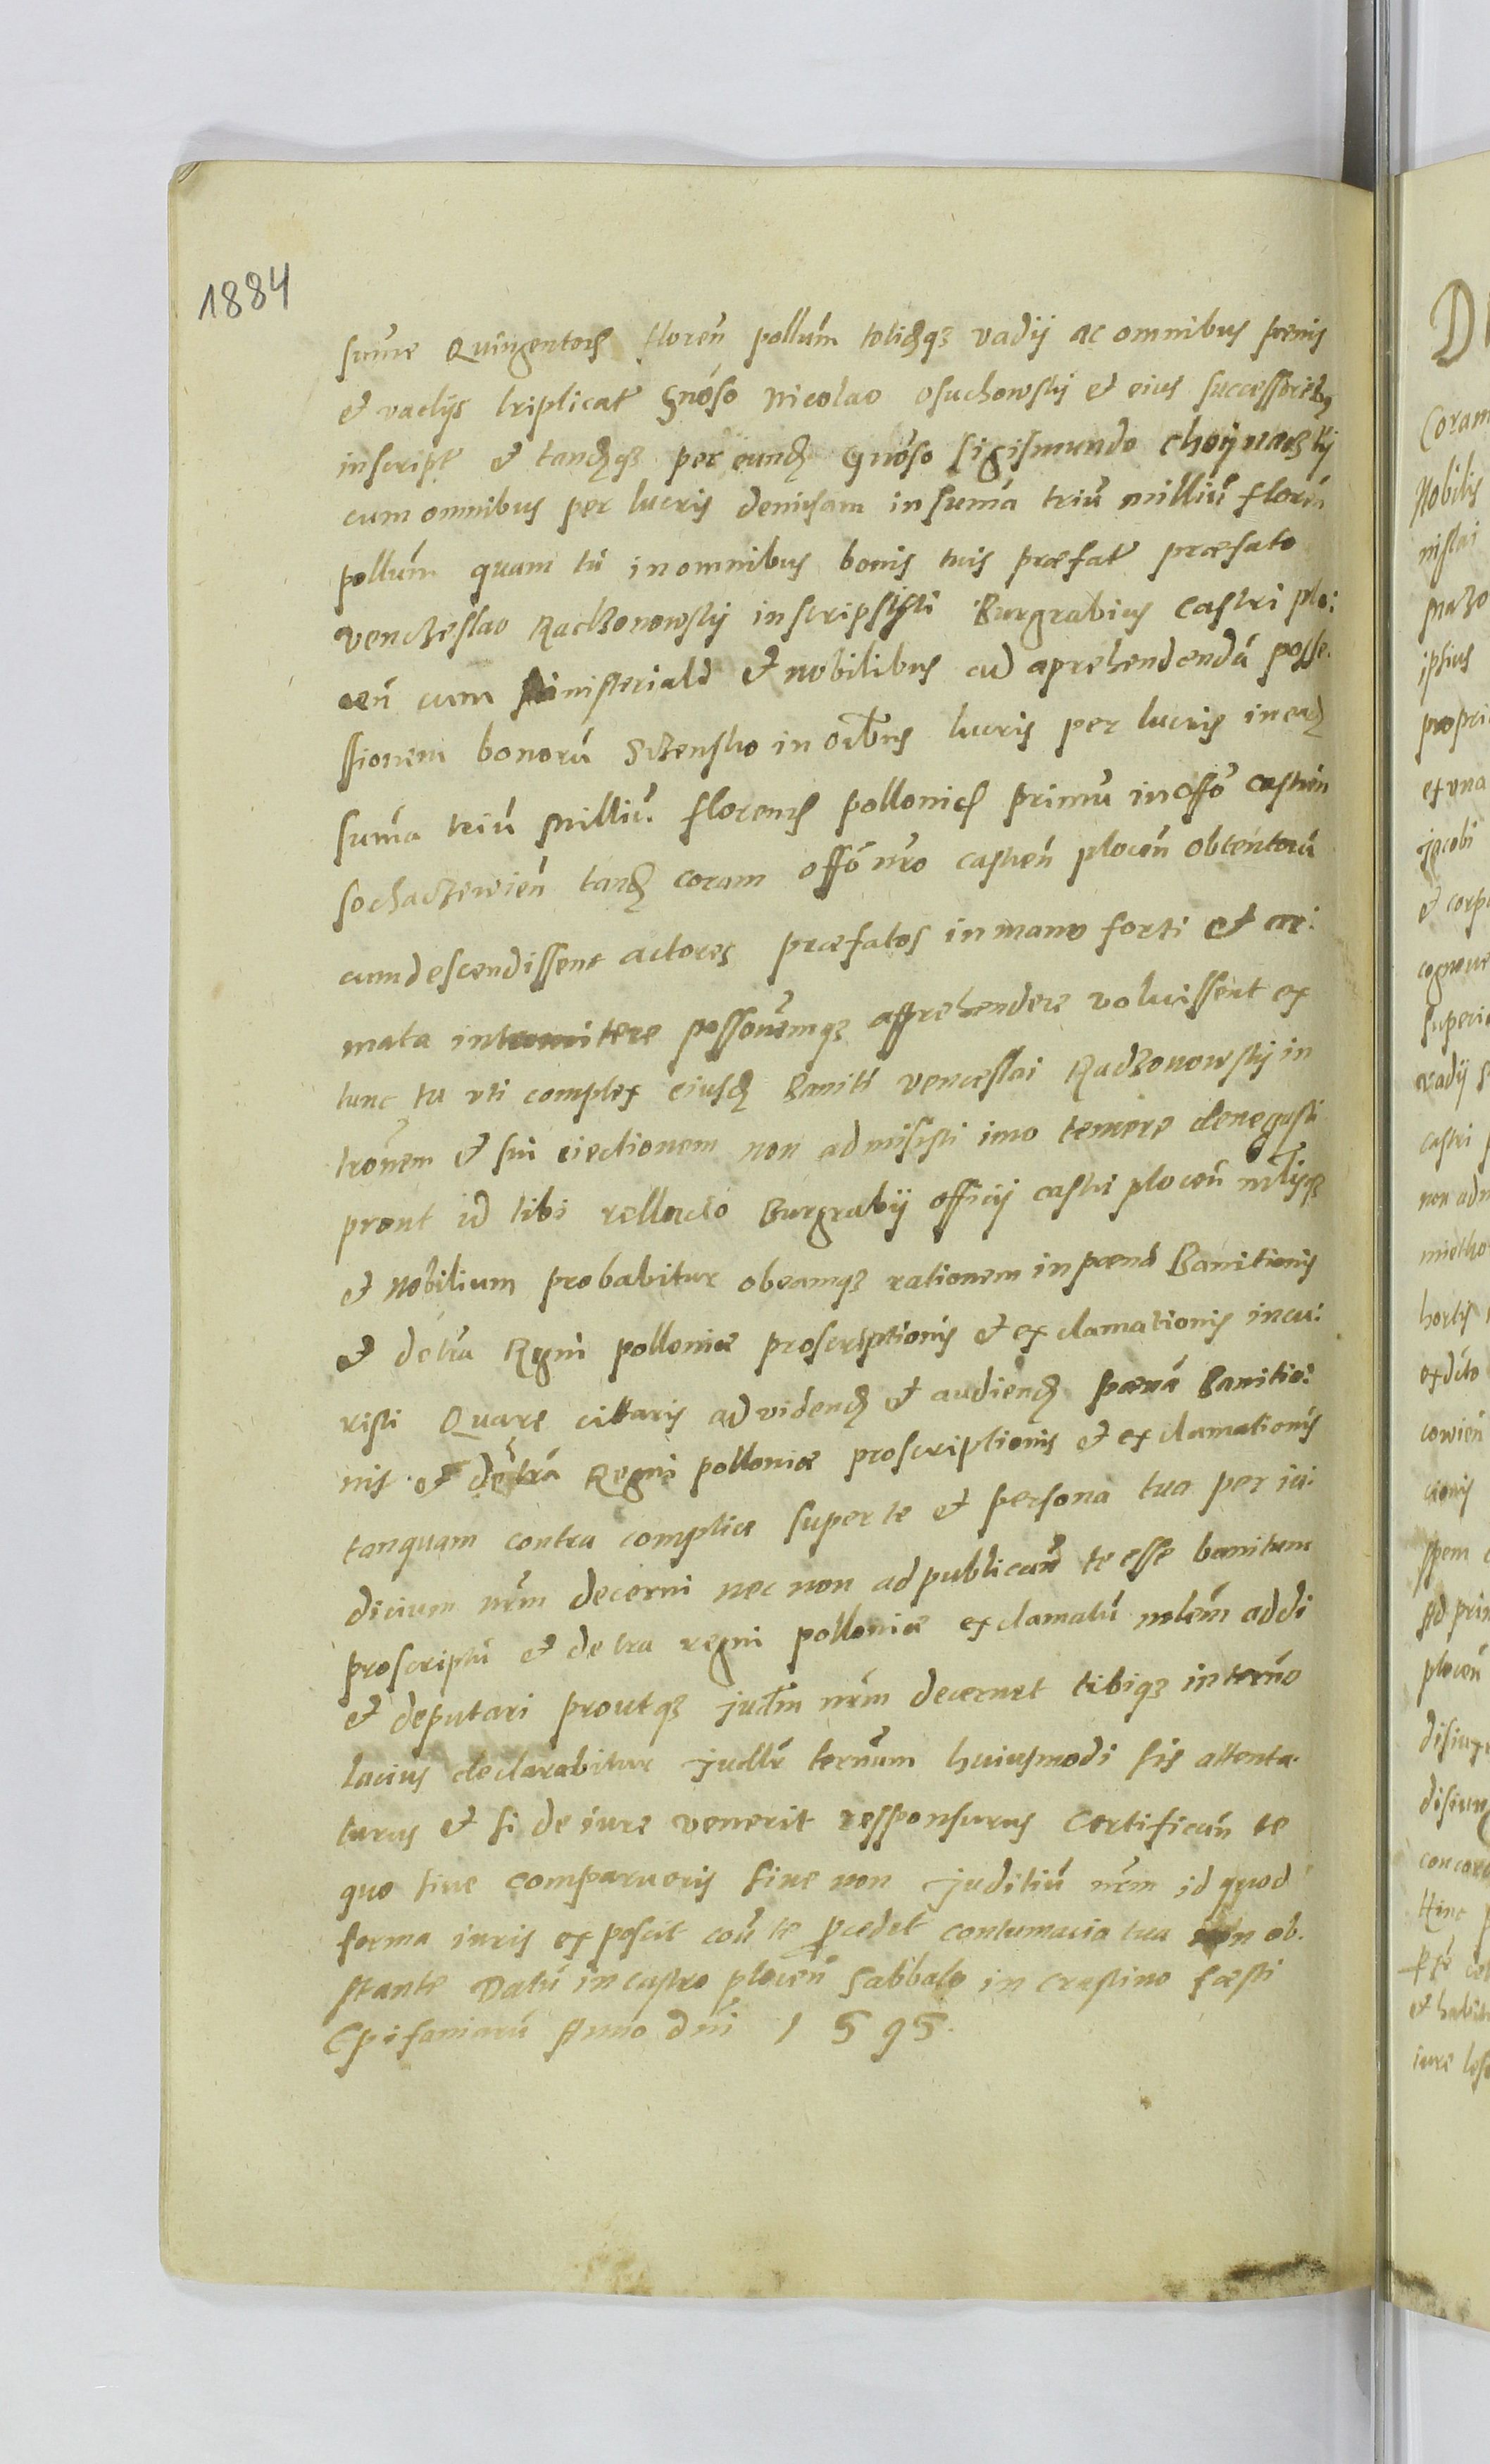 1884
sume Quingentorꝫ floreñ pollum̃ totidꝫqꝫ vadij ac omnibus pœnis
et vadijs triplicat Gnoso Nicolao Osuchowskij et eius successoribꝫ
inscript et tandꝫqꝫ per eundꝫ Gnoso Sigismundo Choynaczkij
cum omnibus per lucris demissam in sumã triũ milliũ floreñ
pollum̃ quam tũ in omnibus bonis tuis præfat præfato
Venczeslao Radzonowskij inscripsisti Burgrabius Castri plo:
ceñ cum Ministeriald et nobilibus ad aprehendendã posse.
ssionem bonorũ Szczensko in oĩbus lucris per lucris in eadꝫ
sumã triũ Milliũ florenꝫ pollonicꝫ primũ in offõ castreñ
sochaczewieñ tandꝫ coram offõ nr̃o castreñ ploceñ obtentorũ
cum descendissent actores præfatos in manu forti et ar:
mata intromitere possonẽmqꝫ apprehendere voluissent ex
tunc tu vti complex eiusdꝫ Baniti venceslai Radzonowskij in
tronẽm et sui eiectionem non admisisti imo temere denegasti
prout id tibi rellacio Burgrabij officij castri ploceñ mlĩjqꝫ
et Nobilium probabitur obeamqꝫ rationem in pœnã Banitionis
et de tr̃a Regni polloniæ proscriptionis et exclamationis incu:
risti Quare cittaris ad videndꝫ et audiendꝫ pœnã Banitio:
nis et de tr̃ã Regni polloniæ proscriptionis et exclamationis
tanquam contra complice super te et persona tua per iu:
dicium nr̃m decerni nec non ad publicanꝫ te esse banitum
proscriptũ et de tra regni polloniæ exclamatũ mlẽm addi
et deputari proutqꝫ judm̃ nr̃m decernet tibiqꝫ in termõ
lacius declarabitur Judllr̃ termũm huiusmodi sis attenta.
turus et si de iure venerit responsurus Certificañ te
quo siue comparueris siue non juditiũ nr̃m id quod
forma iuris exposcit coñ te ꝓcedet contumacia tua non ob.
stante Datũ in castro ploceñ Sabbato in crastino fæsti
Epifaniarũ Anno dñi 1595.
D
Coram
Nobilis
nislai
ipsius
propri
et vna
Jacobi
et corp
cognoue
superi
vadij s
castri p
non adm
hortis
exdito
cowieñ
cionis
ssem
Ad pri
ploceñ
disiun
disiung
concord
Hinc p
et habit
iure